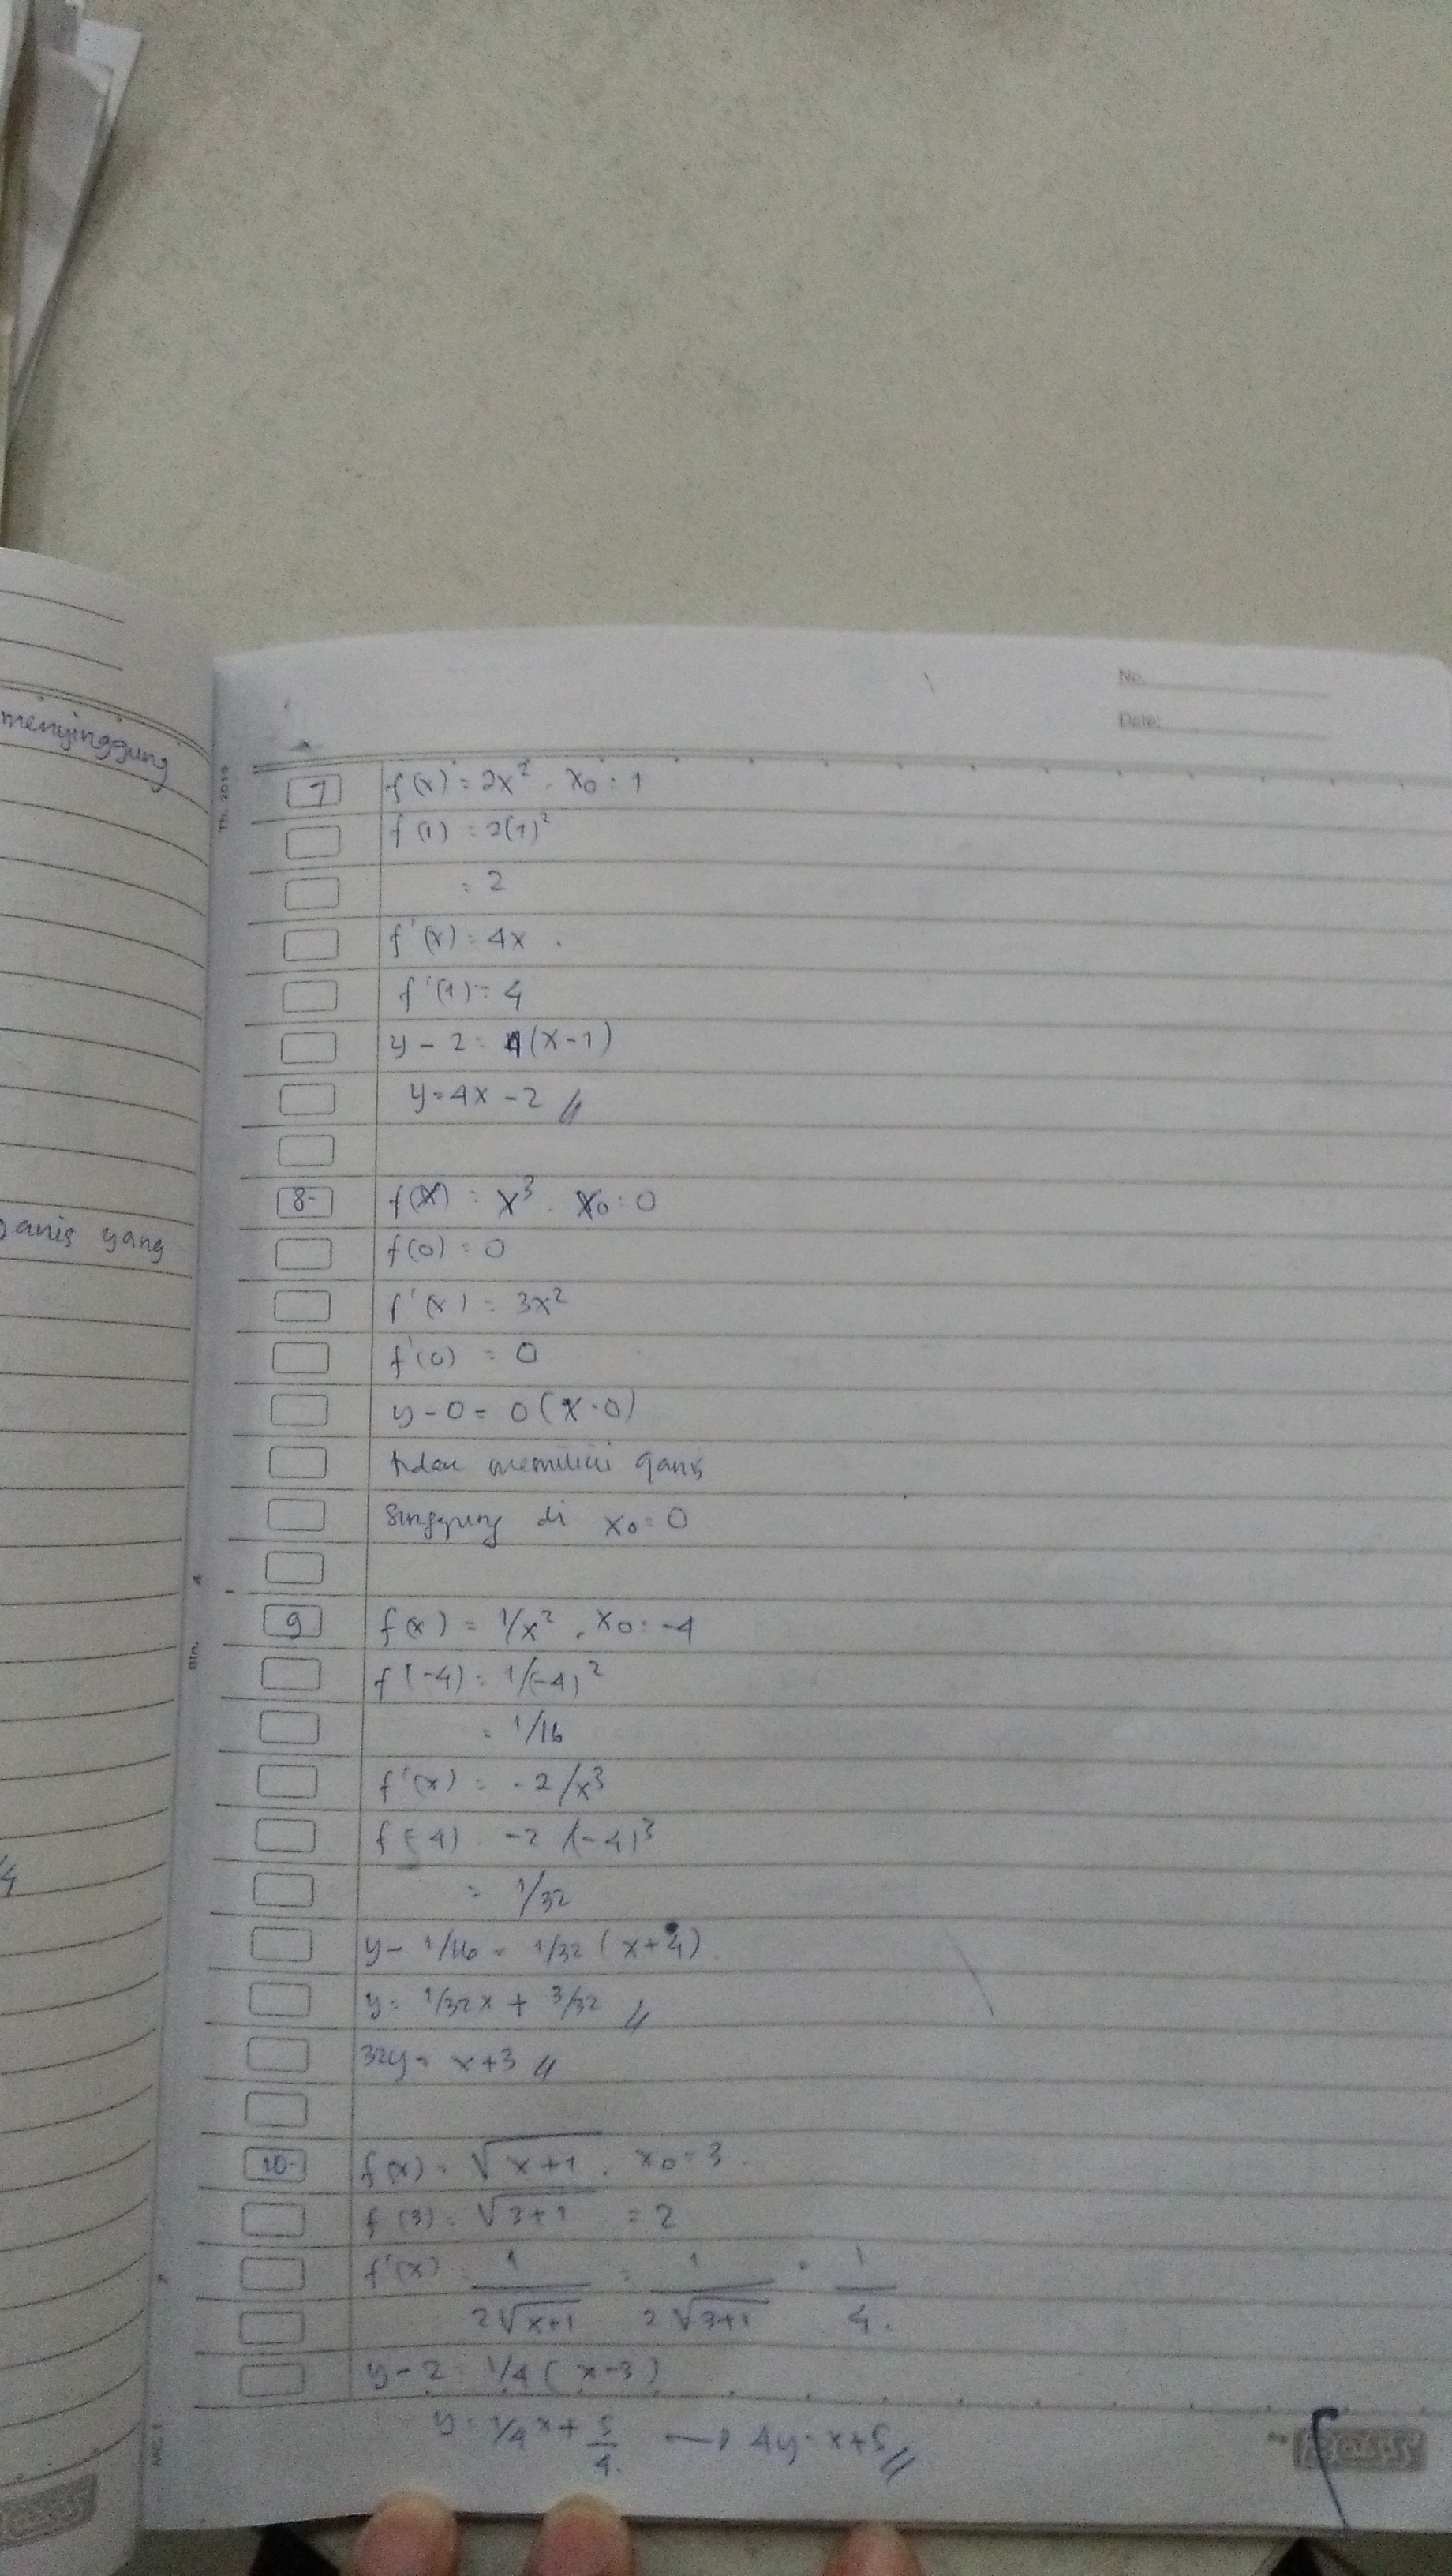 menyinggung
yang
No.
Date:
Th. 2019
7 f(x) = 2x² . x₀ = 1
f(1) = 2(1)²
= 2
f'(x) = 4x .
f'(1) = 4
y - 2 = 4(x-1)
y = 4x - 2 //
8- f(x) = x³ . x₀ = 0
f(0) = 0
f'(x) = 3x²
f'(0) = 0
y - 0 = 0(x-0)
memiliki garis
singgung di x₀ = 0
9 f(x) = 1/x² . x₀ = -4
f(-4) = 1/(-4)²
= 1/16
f'(x) = -2/x³
f(-4) -2/(-4)³
= 1/32
y - 1/16 = 1/32 (x+4)
y = 1/32x + 3/32 //
32y = x+3 //
10- f(x) = √x+1 . x₀ = 3
f(3) = √3+1 = 2
f'(x) = 1/2√x+1 = 1/2√3+1 = 1/4.
y - 2 = 1/4 (x-3)
y = 1/4x + 5/4. → 4y = x+5 //
Bln.